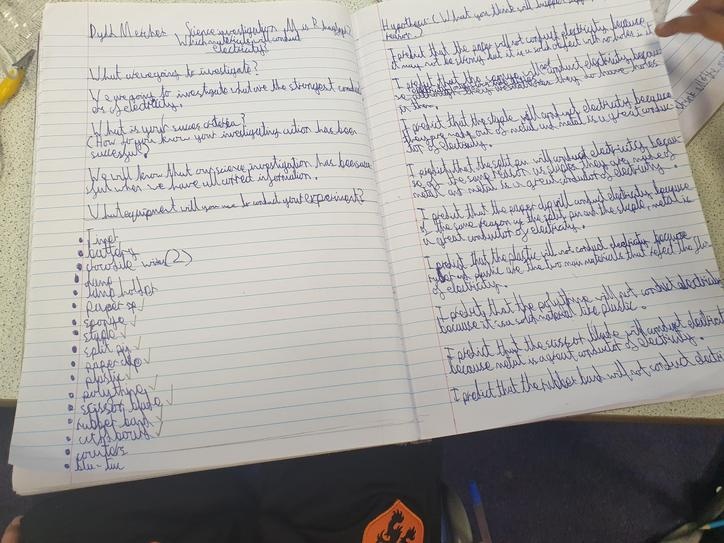 Science investigation
Which materials conduct
electricity?
What are we going to investigate?
We are going to investigate what are the strongest conduct
ors of electricity.
What is your succes criteria?
(How do you know your investigation has been
successful.
We will know that our science investigation has been succes
sful when we have all correct information.
What equipment will you use to conduct your experiment?
battery
crocodile wires (2)
lamp
lamp holder
paper
sponge
staple
split pin
paper clip
plastic
polythene
scissor blade
rubber band
cardboard
counters
blu-tac
Hypothesis: (What you think will happen
reason)
I predict that the paper will not conduct electricity because
it may not be strong but it is a solid object with no holes in it
I predict that the sponge will conduct electricity because
they do have holes
in them.
I predict that the staple will conduct electricity because
staples made out of metal and metal is a great conduc
tor of electricity.
I predict that the split pin will conduct electricity becau
se of the same reason as staple they are made of
metal and metal is a great conductor of electricity.
I predict that the paper clip will conduct electricity because
of the same reason as the split pin and the staple, metal is
a great conductor of electricity.
I predict that the plastic will not conduct electricity because
rubber and plastic are the two main materials that the
of electricity.
I predict that the polythene will not conduct electricity
because it is a solid material like plastic.
I predict that the scissor blade will conduct electricity
because metal is a great conductor of electricity.
I predict that the rubber band will not conduct elect